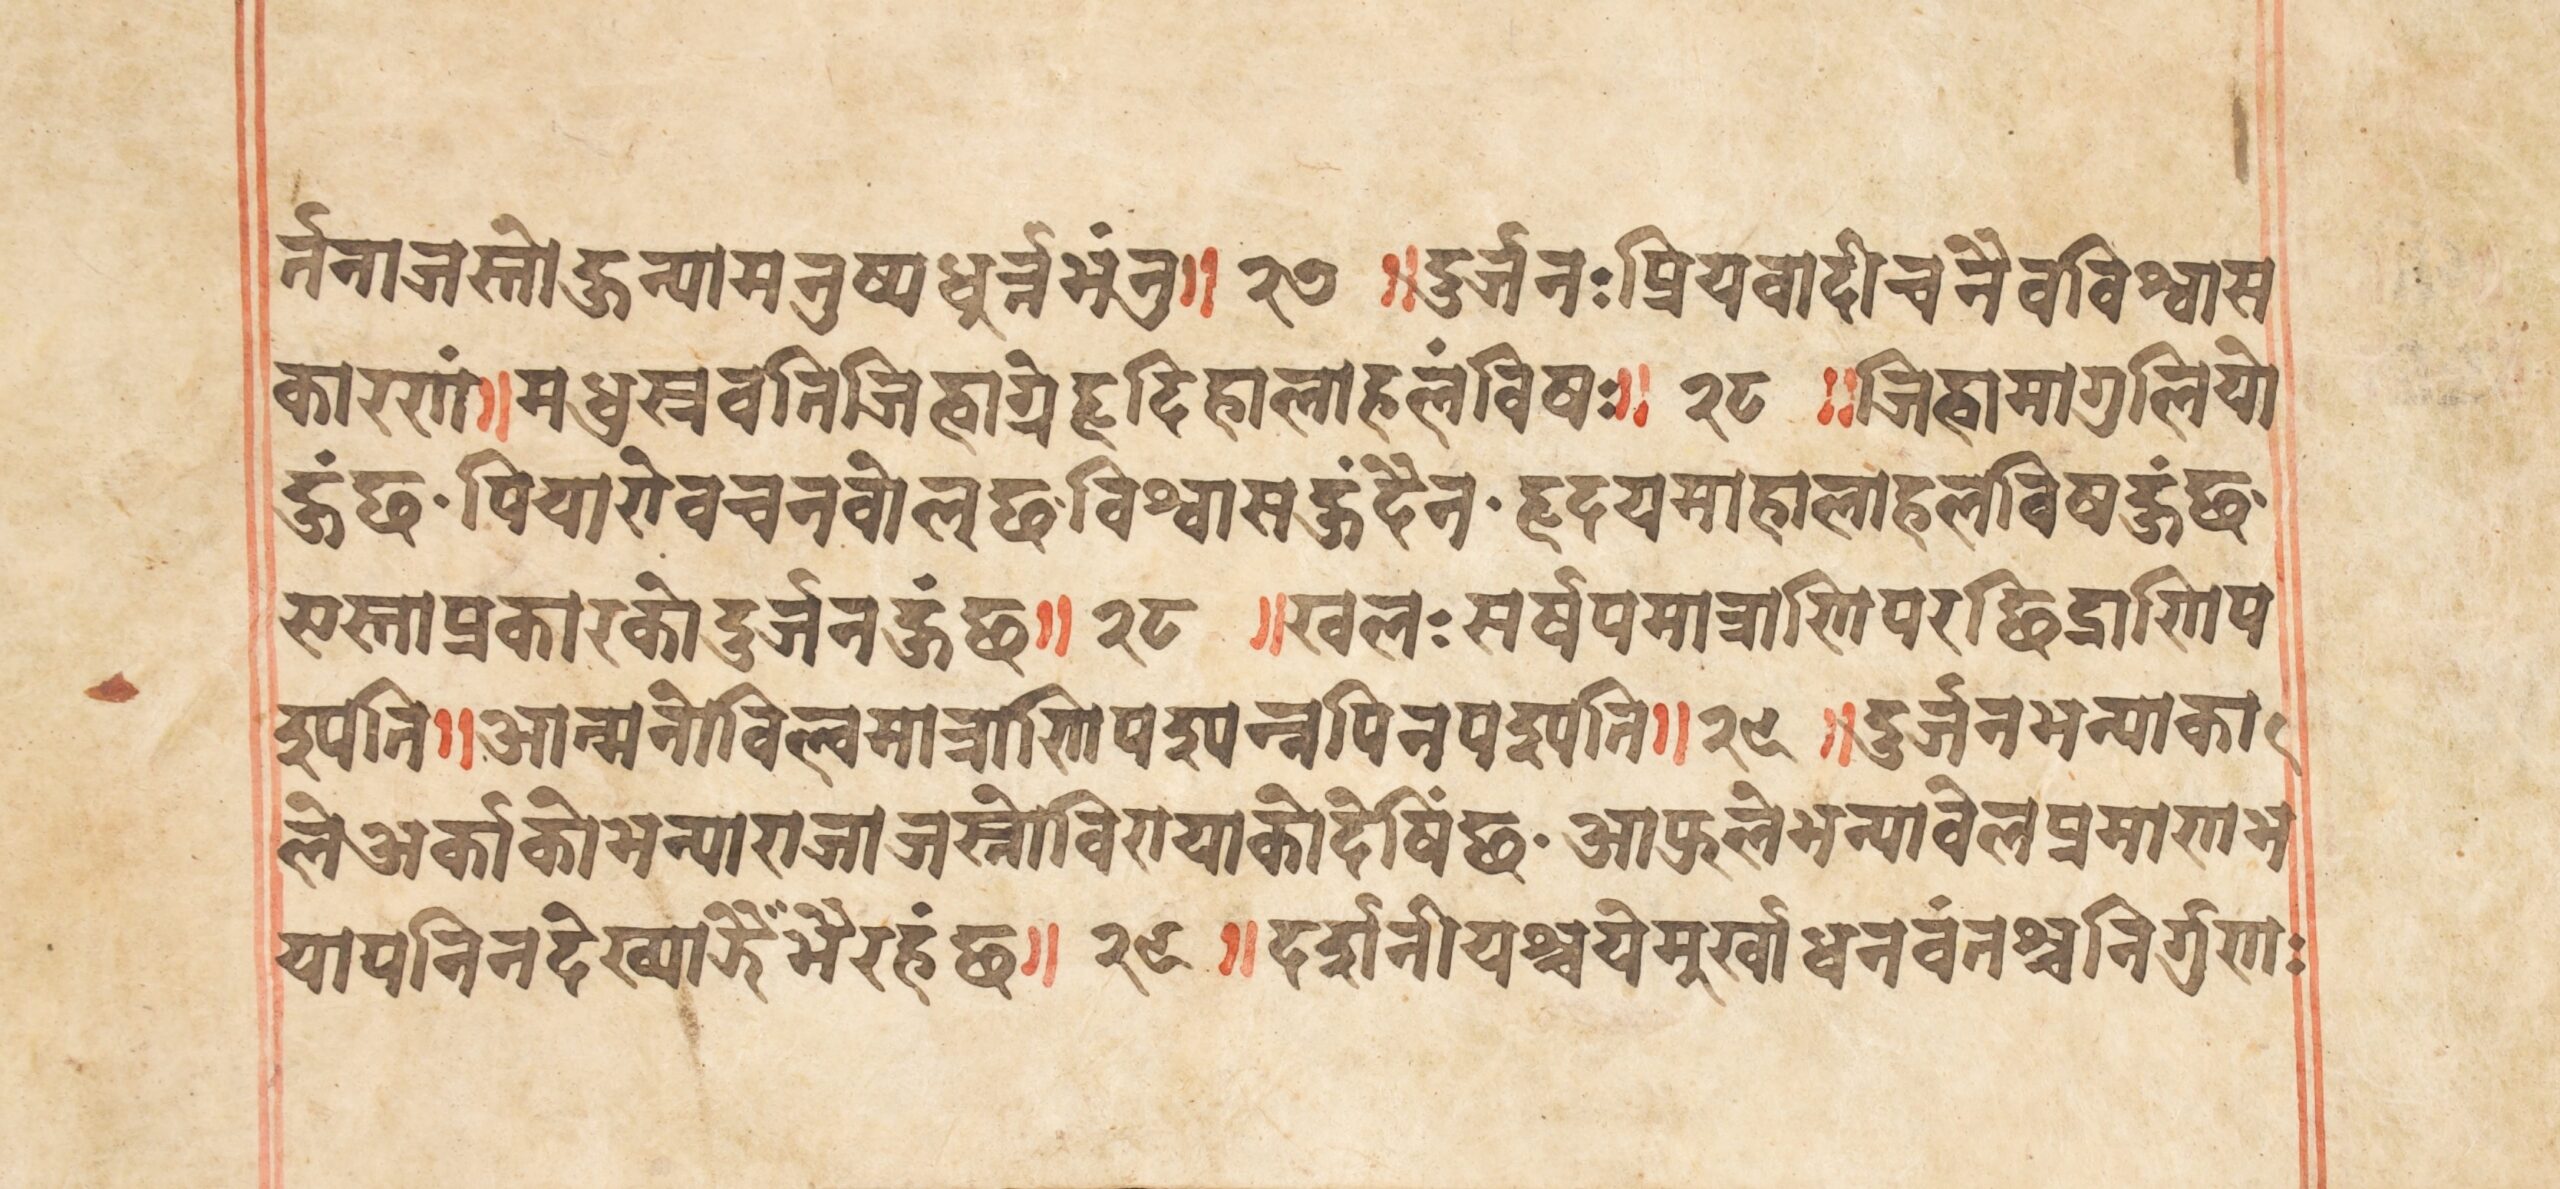 र्त्तनाजस्तोहुन्यामनुष्यधुर्त्तभंनु॥ २७ ॥दुर्जनःप्रियवादीचनैवविश्वास
कारणं॥मधुस्रवतिजिह्वाग्रेहृदिहालाहलंविषः॥ २८ ॥जिह्वामागुलियो
हुंछ·पियारोवचनबोल्छविश्वासहुंदैन·हृदयमाहालाहलविषहुंछ·
एस्ताप्रकारकोदुर्जनहुंछ॥ २८ ॥खलःसर्षपमात्राणिपरछिद्राणिप
श्यति॥आत्मनोविल्वमात्राणिपश्यन्नपिनपश्यति॥२९ ॥दुर्जनभन्याका
लेअर्काकोभन्याराजाजस्तोविरायाकोदेषिंछ·आफुलेभन्यावेलप्रमाणभ
यापनिनदेख्याझैँभैरहंछ॥ २९ ॥दर्शनीयश्चयेमुर्खाधनवंतश्चनिर्गुणाः